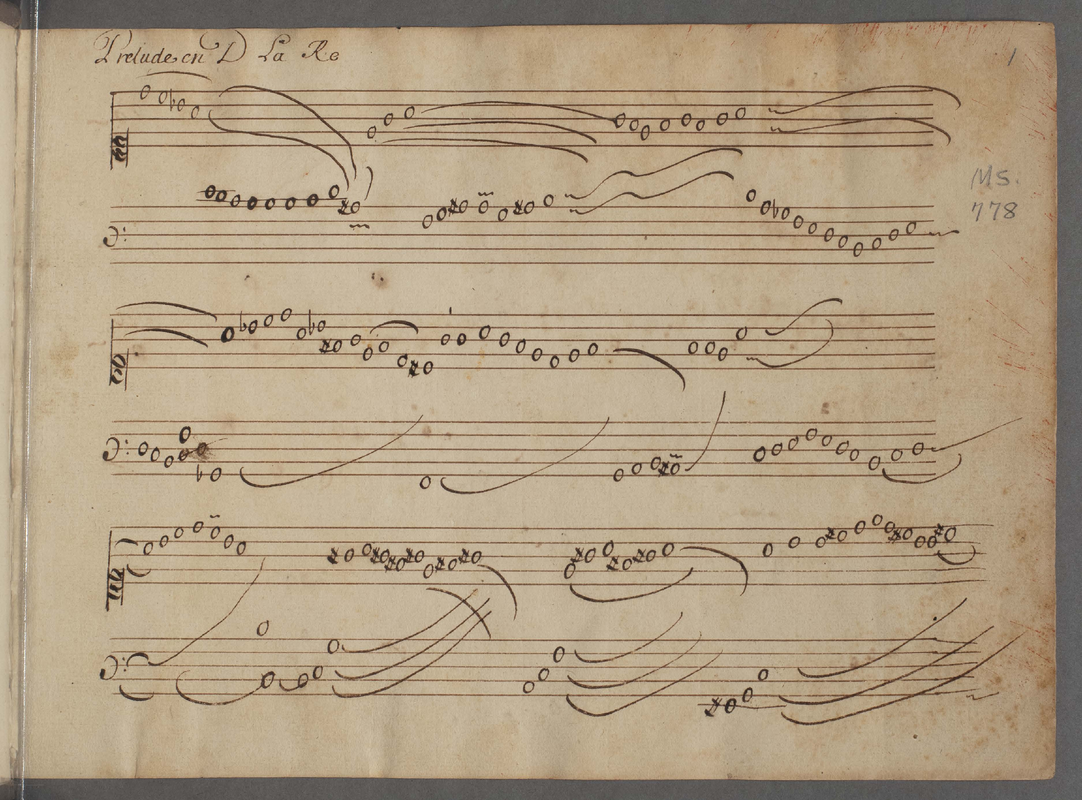 Prelude en D La Re
1
Ms.
778